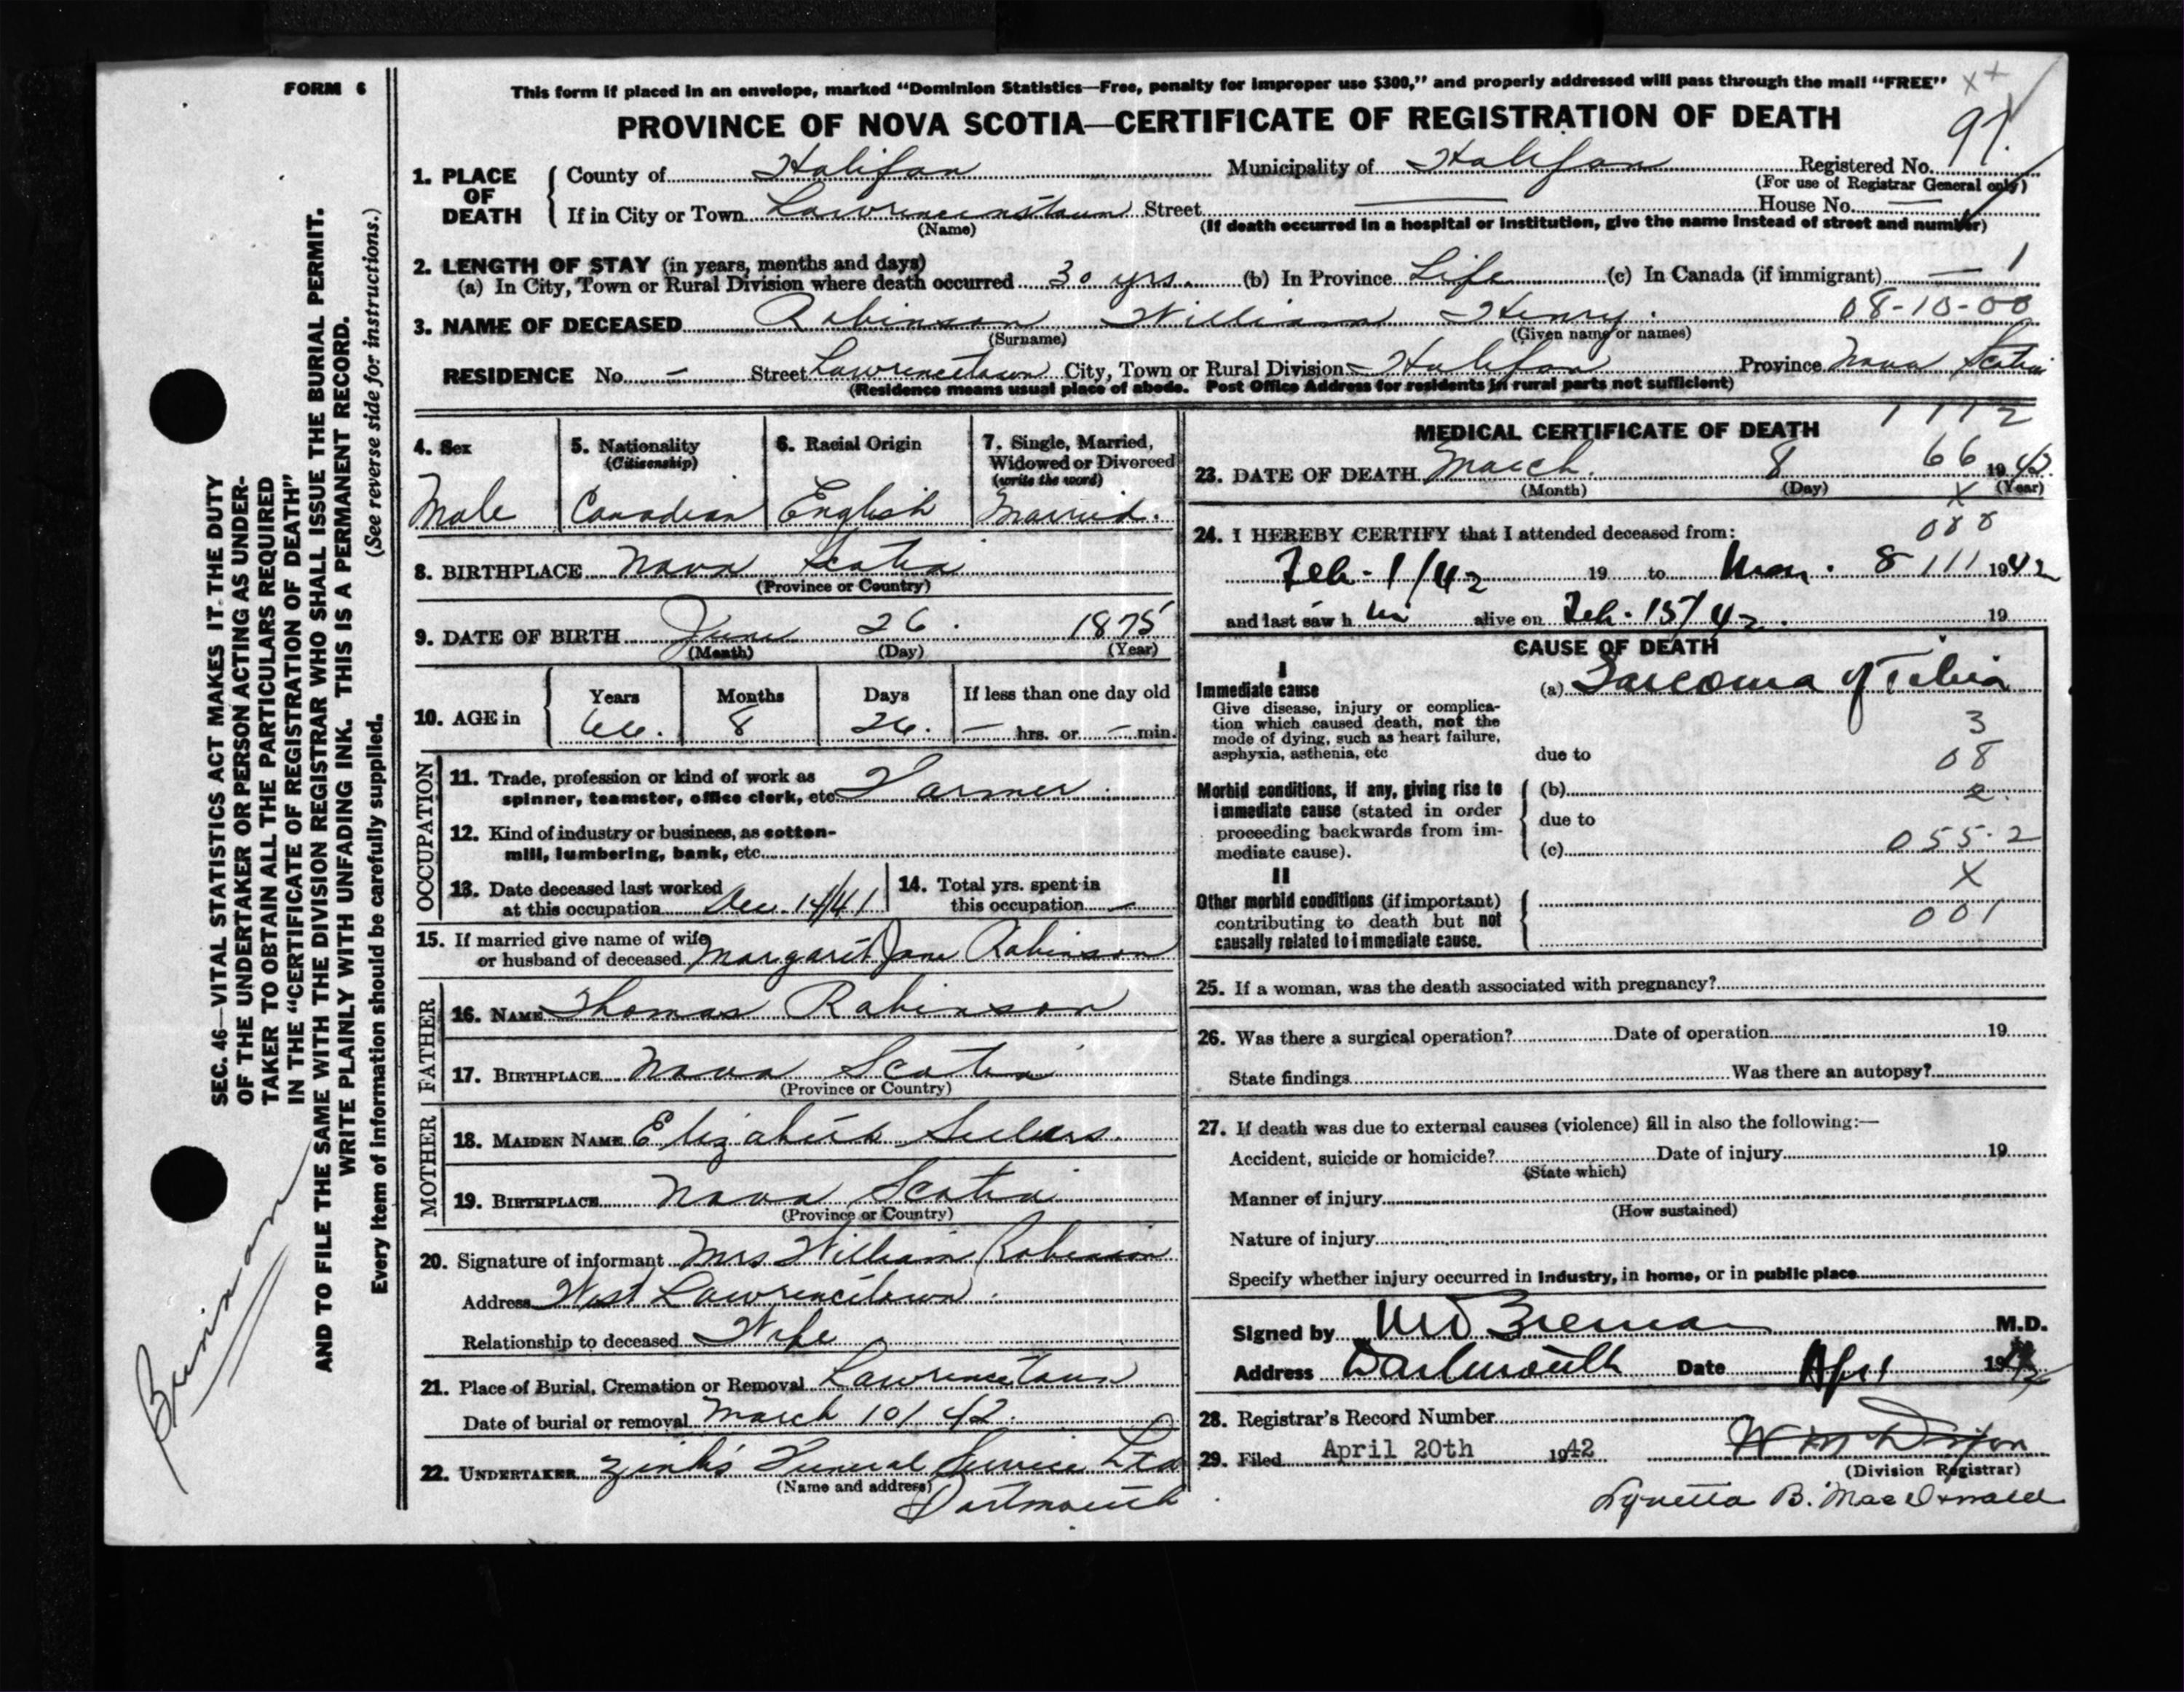 FORM 6
This form if placed in an envelope, marked "Dominion Statistics—Free, penalty for improper use $300," and properly addressed will pass through the mail "FREE"
PROVINCE OF NOVA SCOTIA—CERTIFICATE OF REGISTRATION OF DEATH
97
1. PLACE OF DEATH
County of Halifax Municipality of Halifax Registered No.
(For use of Registrar General only)
If in City or Town Lawrencetown Street — House No. —
(Name) (If death occurred in a hospital or institution, give the name instead of street and number)
2. LENGTH OF STAY (in years, months and days)
(a) In City, Town or Rural Division where death occurred 30 yrs. (b) In Province Life (c) In Canada (if immigrant) — 1
08-10-00
3. NAME OF DECEASED Robinson William Henry.
(Surname) (Given name or names)
RESIDENCE No. — Street Lawrencetown City, Town or Rural Division Halifax Province Nova Scotia
(Residence means usual place of abode. Post Office Address for residents in rural parts not sufficient)
4. Sex
Male
5. Nationality
(Citizenship)
Canadian
6. Racial Origin
English
7. Single, Married,
Widowed or Divorced
(write the word)
Married.
8. BIRTHPLACE Nova Scotia
(Province or Country)
9. DATE OF BIRTH June 26. 1875
(Month) (Day) (Year)
10. AGE in
Years Months Days If less than one day old
66. 8 26. — hrs. or — min.
OCCUPATION
11. Trade, profession or kind of work as
spinner, teamster, office clerk, etc. Farmer.
12. Kind of industry or business, as cotton-
mill, lumbering, bank, etc.
13. Date deceased last worked
at this occupation Dec. 14/41
14. Total yrs. spent in
this occupation —
15. If married give name of wife
or husband of deceased Margaret Jane Robinson
FATHER
16. NAME Thomas Robinson
17. BIRTHPLACE Nova Scotia
(Province or Country)
MOTHER
18. MAIDEN NAME Elizabeth
19. BIRTHPLACE Nova Scotia
(Province or Country)
20. Signature of informant Mrs William Robinson
Address West Lawrencetown.
Relationship to deceased Wife
21. Place of Burial, Cremation or Removal Lawrencetown
Date of burial or removal March 10/42.
22. UNDERTAKER Zink's Funeral Service Ltd
(Name and address)
Dartmouth
MEDICAL CERTIFICATE OF DEATH
1112
23. DATE OF DEATH March. 8 66 1942
(Month) (Day) (Year)
X
24. I HEREBY CERTIFY that I attended deceased from: 088
Feb - 1/42 19 to Mar. 8 111 1942
and last saw him alive on Feb. 15/42. 19
CAUSE OF DEATH
I
Immediate cause
Give disease, injury or complica-
tion which caused death, not the
mode of dying, such as heart failure,
asphyxia, asthenia, etc
(a) Sarcoma of Tibia
3
due to 08
Morbid conditions, if any, giving rise to
immediate cause (stated in order
proceeding backwards from im-
mediate cause).
(b) 2.
due to
(c) 055.2
X
II
Other morbid conditions (if important)
contributing to death but not
causally related to immediate cause.
001
25. If a woman, was the death associated with pregnancy?
26. Was there a surgical operation? Date of operation 19
State findings Was there an autopsy?
27. If death was due to external causes (violence) fill in also the following:—
Accident, suicide or homicide? Date of injury 19
(State which)
Manner of injury
(How sustained)
Nature of injury
Specify whether injury occurred in industry, in home, or in public place
Signed by M.D.
Address Dartmouth Date Apr 1 19
28. Registrar's Record Number
29. Filed April 20th 1942
(Division Registrar)
Lynetta B. MacDonald
SEC. 46—VITAL STATISTICS ACT MAKES IT THE DUTY
OF THE UNDERTAKER OR PERSON ACTING AS UNDER-
TAKER TO OBTAIN ALL THE PARTICULARS REQUIRED
IN THE "CERTIFICATE OF REGISTRATION OF DEATH"
AND TO FILE THE SAME WITH THE DIVISION REGISTRAR WHO SHALL ISSUE THE BURIAL PERMIT.
WRITE PLAINLY WITH UNFADING INK. THIS IS A PERMANENT RECORD.
Every item of information should be carefully supplied. (See reverse side for instructions.)